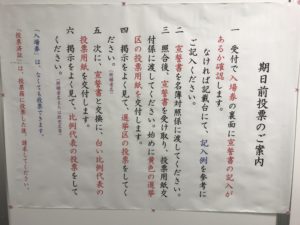 期日前投票のご案内
一 受付で入場券の裏面に宣誓書の記入が
あるか確認します。
なければ記載台にて、記入例を参考に
ご記入ください。
二 宣誓書を名簿対照係に渡してください。
三 照合後、宣誓書を受け取り、投票用紙交
付係に渡してください。始めに黄色の選挙
区の投票用紙を交付します。
四 掲示をよく見て、選挙区の投票をしてく
ださい。
五 次に、宣誓書と交換に、白い比例代表の
投票用紙を交付します。
六 掲示をよく見て、比例代表の投票をして
ください。
「入場券」は、なくても投票できます。
「投票済証」